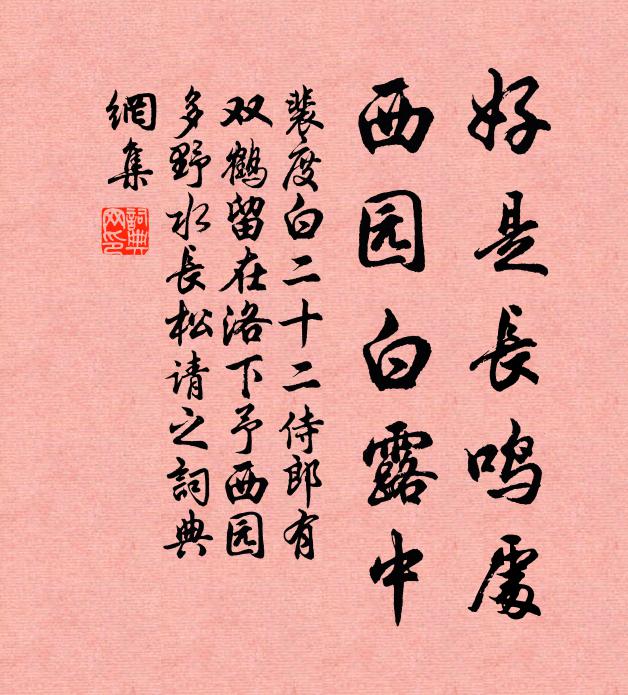 好是長鸣處
西园白露中
裴度白二十二侍郎有
双鶴留在洛下予西园
多野水長松请之詞典
網集
詞典網印